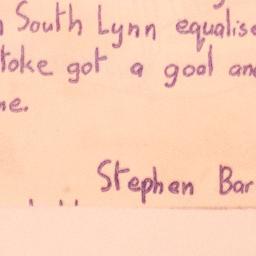 South Lynn equalise
toke got a goal an
ne.
Stephen Bar